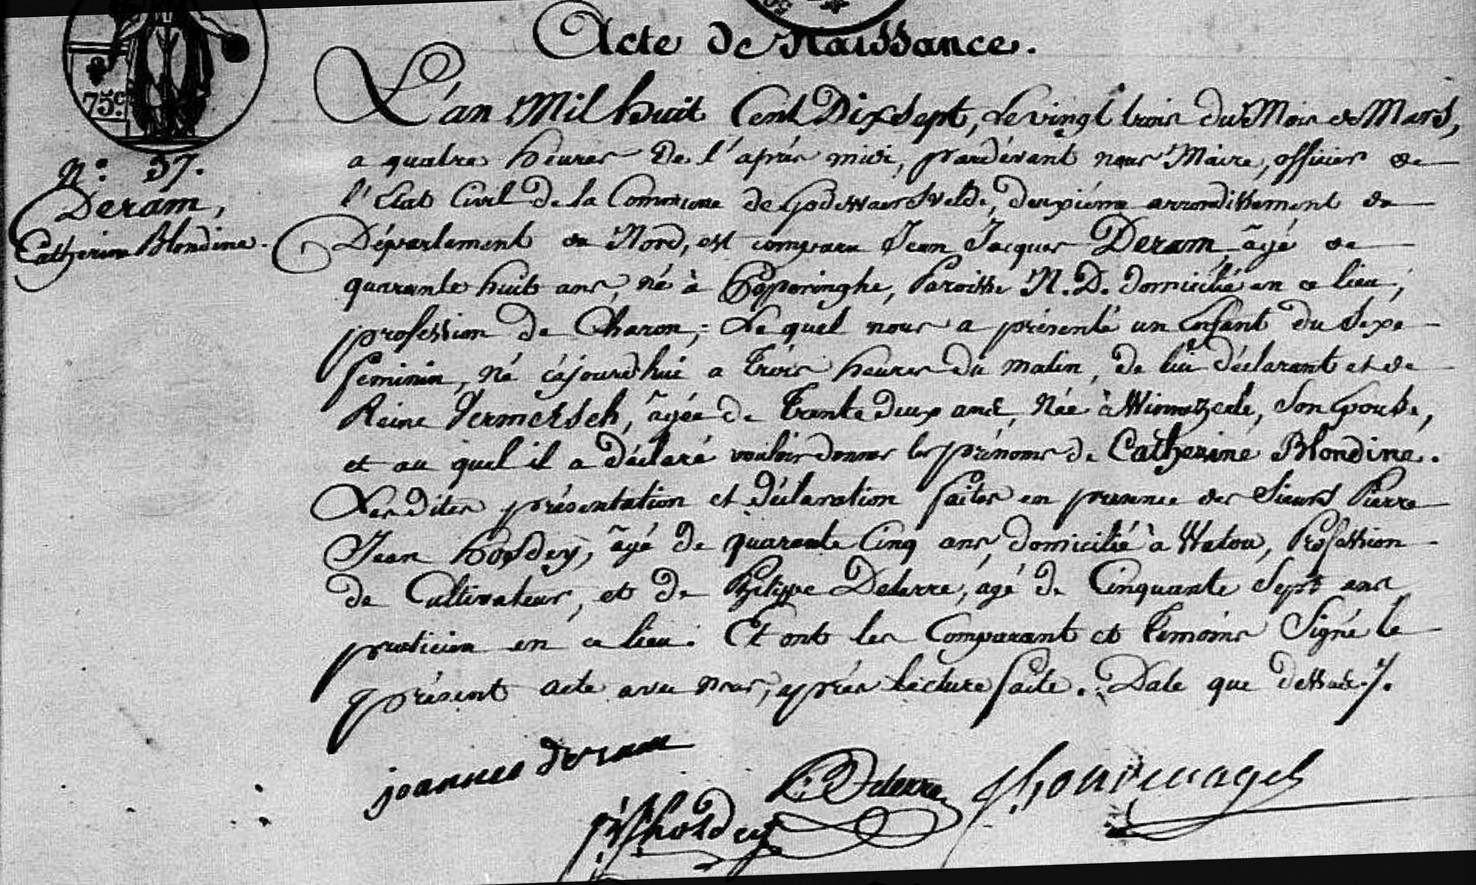 Acte de Naissance.
75c.
N.° 37.
Deram,
Catherine Blondine.
L'an Mil huit Cent Dix Sept, Le vingt trois du Mois de Mars,
a quatre heures de l'après midi, pardévant nous Maire, officier de
l'Etat Civil de la Commune de Godewaersvelde, deuxiéme arrondissement du
Département du Nord, est comparu Jean Jacques Deram, âgé de
quarante huit ans, né à Poperinghe, Paroisse N. D. domicilié en ce lieu,
profession de Charon; Lequel nous a présenté un Enfant du Sexe
feminin, né cejourd'hui a Trois heures du matin, de lui déclarant et de
Reine Vermersch, âgée de Trente deux ans, Née à Winnezeele, Son Epouse,
et au quel il a déclaré vouloir donner les prénoms de Catherine Blondine.
Lesdites présentation et déclaration faites en presence des Sieurs Pierre
Jean hosdey, âgé de quarante Cinq ans, domicilié à Watou, Profession
de Cultivateur, et de Philippe Deterre, âgé de Cinquante Sept ans
praticien en ce lieu. Et ont les Comparant et Temoins Signé le
présent acte avec Nous, après lecture faite. Date que dessus.
joannes deram
P: Deterre
hosdey